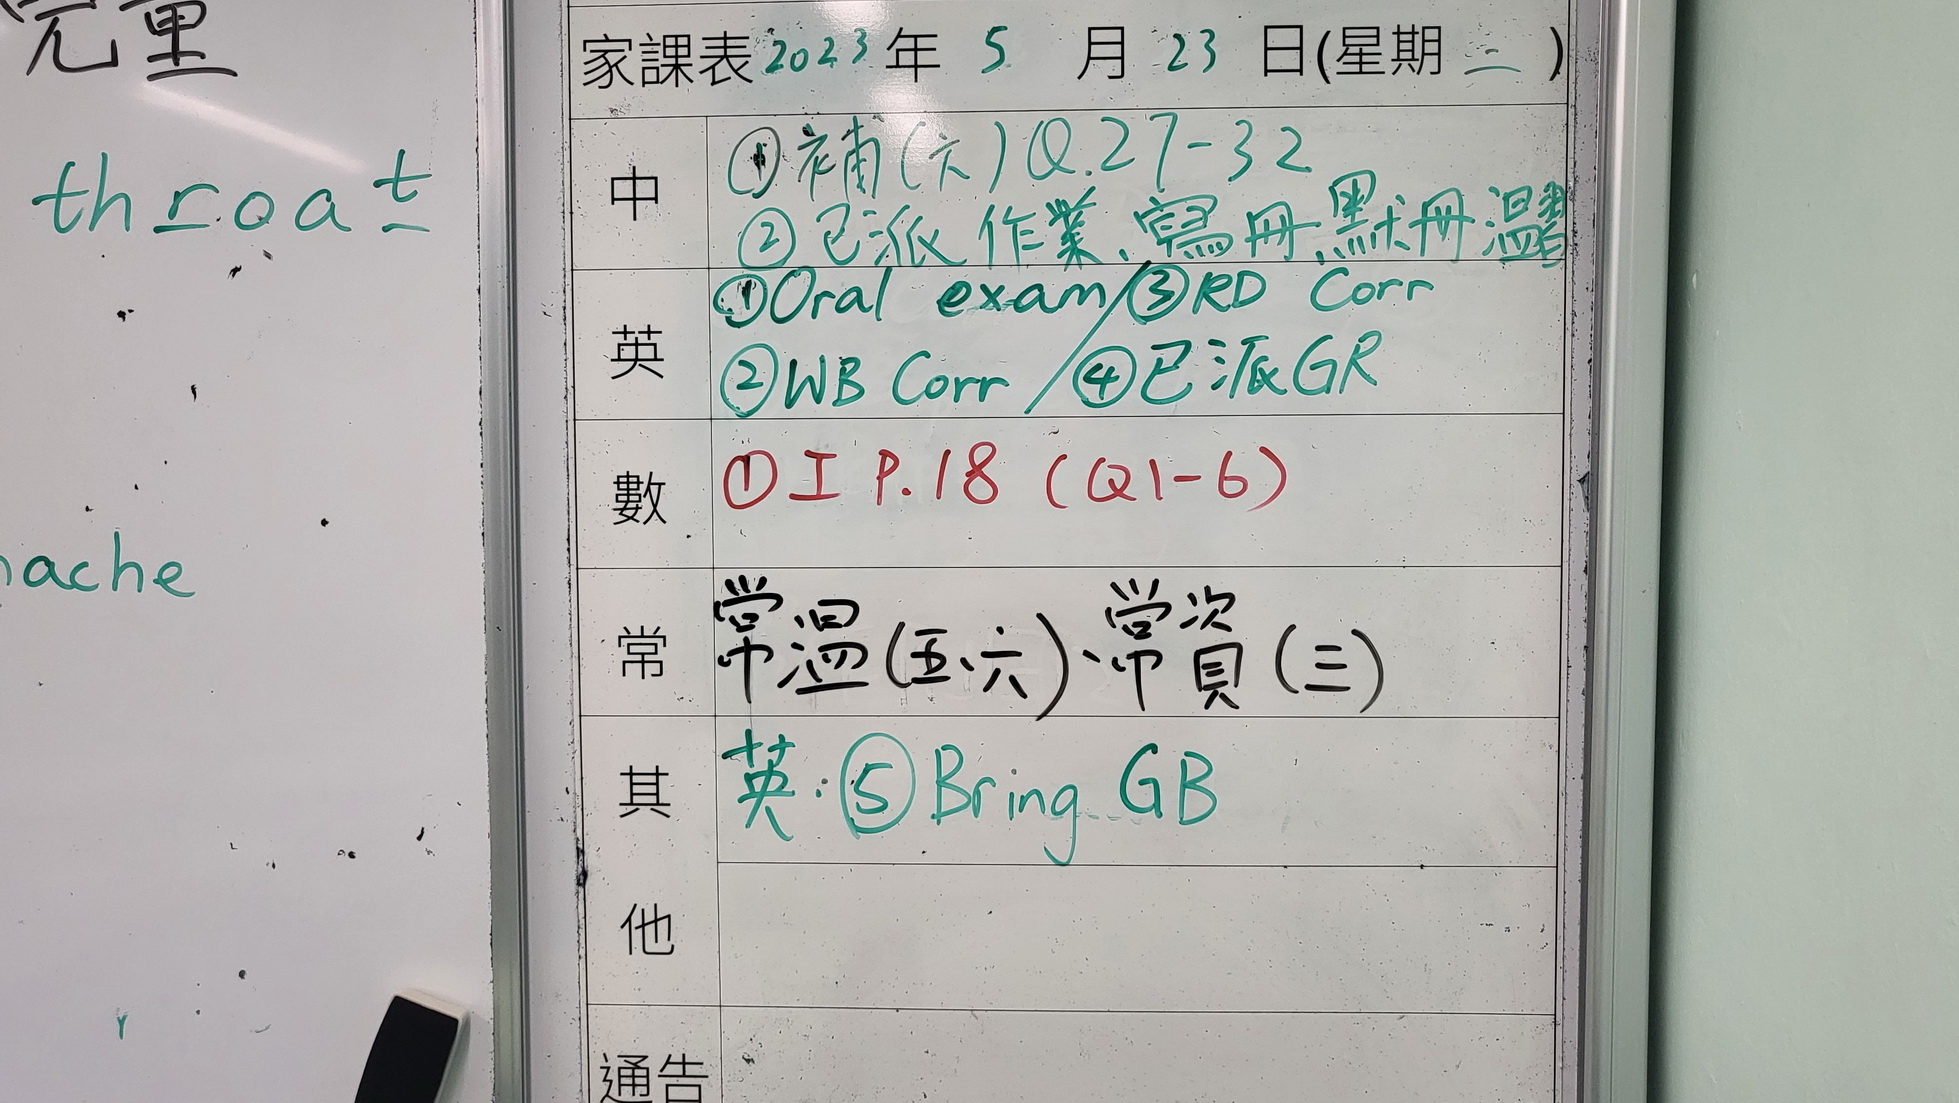 完重
throat
ache
家課表 2023 年 5 月 23 日(星期 二 )
中
① 補(六) Q.27-32
② 已派 作業、寫冊、默冊 溫習
英
① Oral exam / ③ RD Corr
② WB Corr / ④ 已派 GR
數
① 工 P.18 (Q1-6)
常
常溫(五、六)、常資(三)
其
英:⑤ Bring GB
他
通告